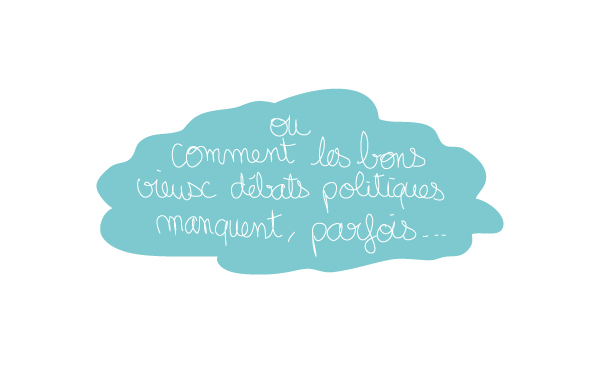 ou
comment les bons
vieux débats politiques
manquent, parfois...